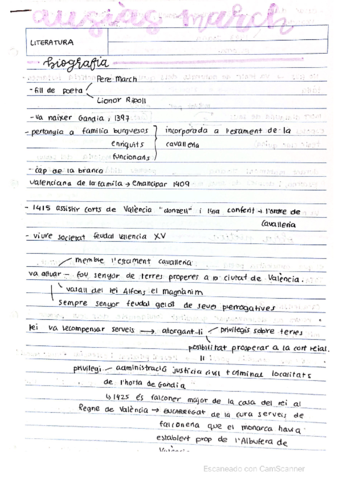 ausiàs march
LITERATURA
biografia
Pere March
- fill de poeta
Lionor Ripoll
- va naixer Gandia, 1397
- pertangia a família burgesos incorporada a l'estament de la
enriquits cavalleria
funcionaris
- cap de la branca
valenciana de la família + emancipar 1409
- 1415 assistir corts de València "donzell" i confert l'ordre de
cavalleria
- viure societat feudal valencia XV
membre l'estament cavalleria
va actuar - fou senyor de terres properes a a ciutat de València.
vasall del rei Alfons el magnànim
sempre senyor feudal gelós de seves prerrogatives
rei va recompensar serveis → atorgant-li privilegis sobre terres
possibilitat prosperar a la cort reial.
privilegi - administració justícia civil i criminal localitats
de l'horta de Gandia
1425 és falconer major de la casa del rei al
Regne de València → ENCARREGAT de la cura serveis de
falconeria que el monarca havia
establert prop de l'Albufera de
València
Escaneado con CamScanner